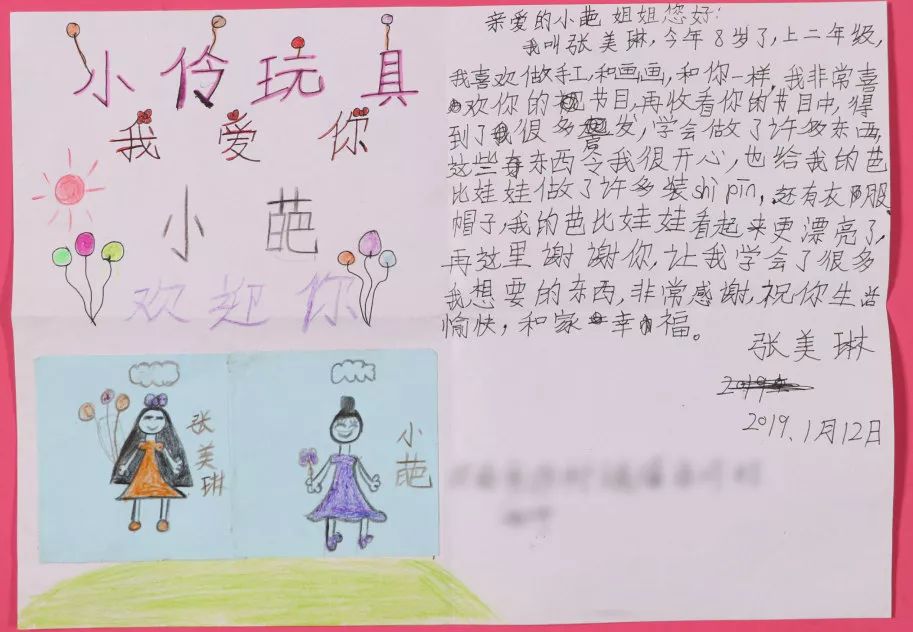 小伶玩具
我爱你
小葩
欢迎你
张美琳
小葩
亲爱的小葩姐姐您好:
我叫张美琳,今年8岁了,上二年级,
我喜欢做手工,和画画,和你一样,我非常喜
欢你的节目,再收看你的节目中,得
到了很多意发,学会做了许多东西,
这些东西令我很开心,也给我的芭
比娃娃做了许多装shi pin,还有衣服
帽子,我的芭比娃娃看起来更漂亮了,
再这里谢谢你,让我学会了很多
我想要的东西,非常感谢,祝你生活
愉快,和家幸福。
张美琳
2019年
2019.1月12日